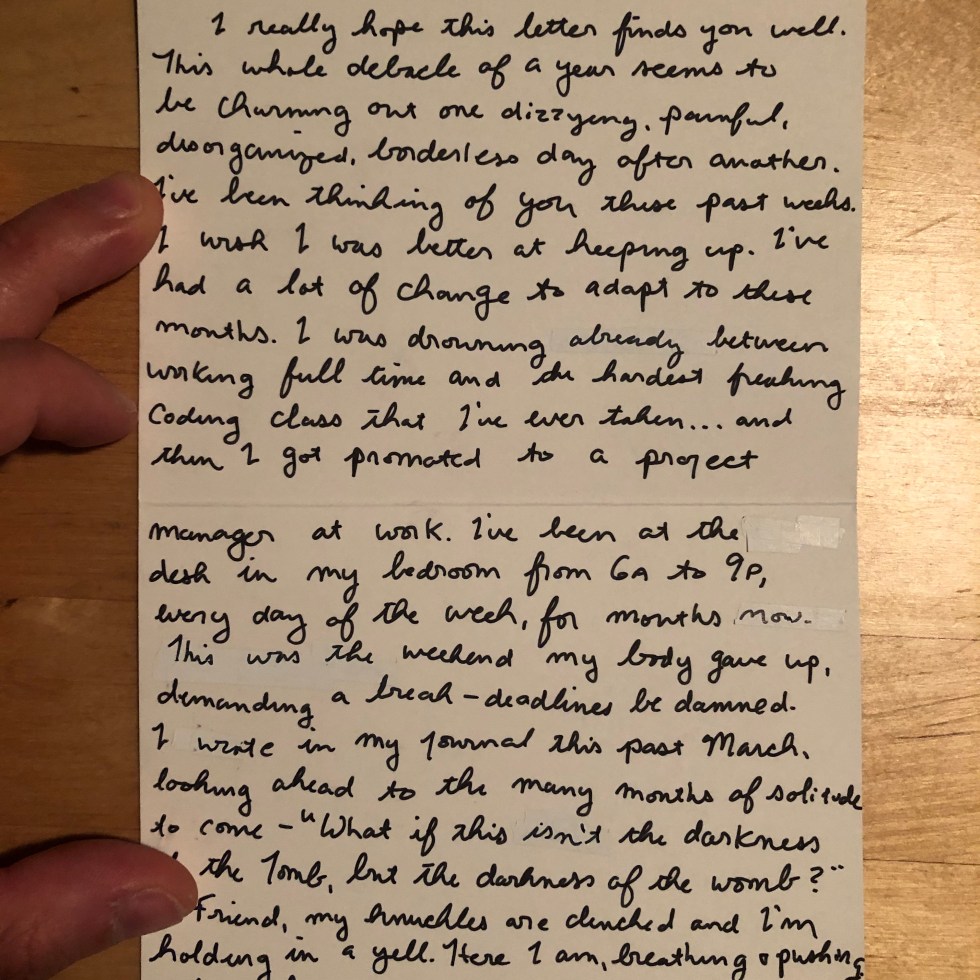 I really hope this letter finds you well.
This whole debacle of a year seems to
be churning out one dizzying, painful,
disorganized, borderless day after another.
I've been thinking of you these past weeks.
I wish I was better at keeping up. I've
had a lot of change to adapt to these
months. I was drowning already between
working full time and the hardest freaking
coding class that I've ever taken... and
then I got promoted to a project
manager at work. I've been at the
desk in my bedroom from 6A to 9P,
every day of the week, for months now.
This was the weekend my body gave up,
demanding a break - deadlines be damned.
I wrote in my journal this past March,
looking ahead to the many months of solitude
to come - "What if this isn't the darkness
the Tomb, but the darkness of the womb?"
Friend, my knuckles are clenched and I'm
holding in a yell. Here I am, breathing & pushing